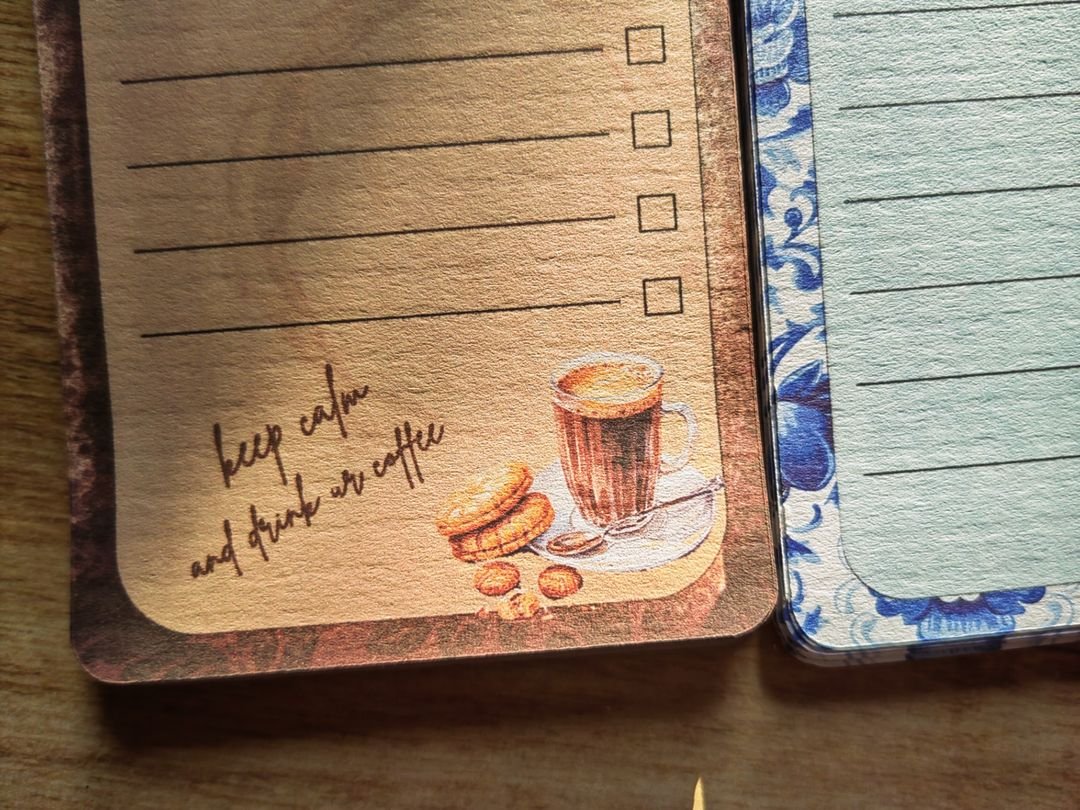 keep calm
and drink ur coffee